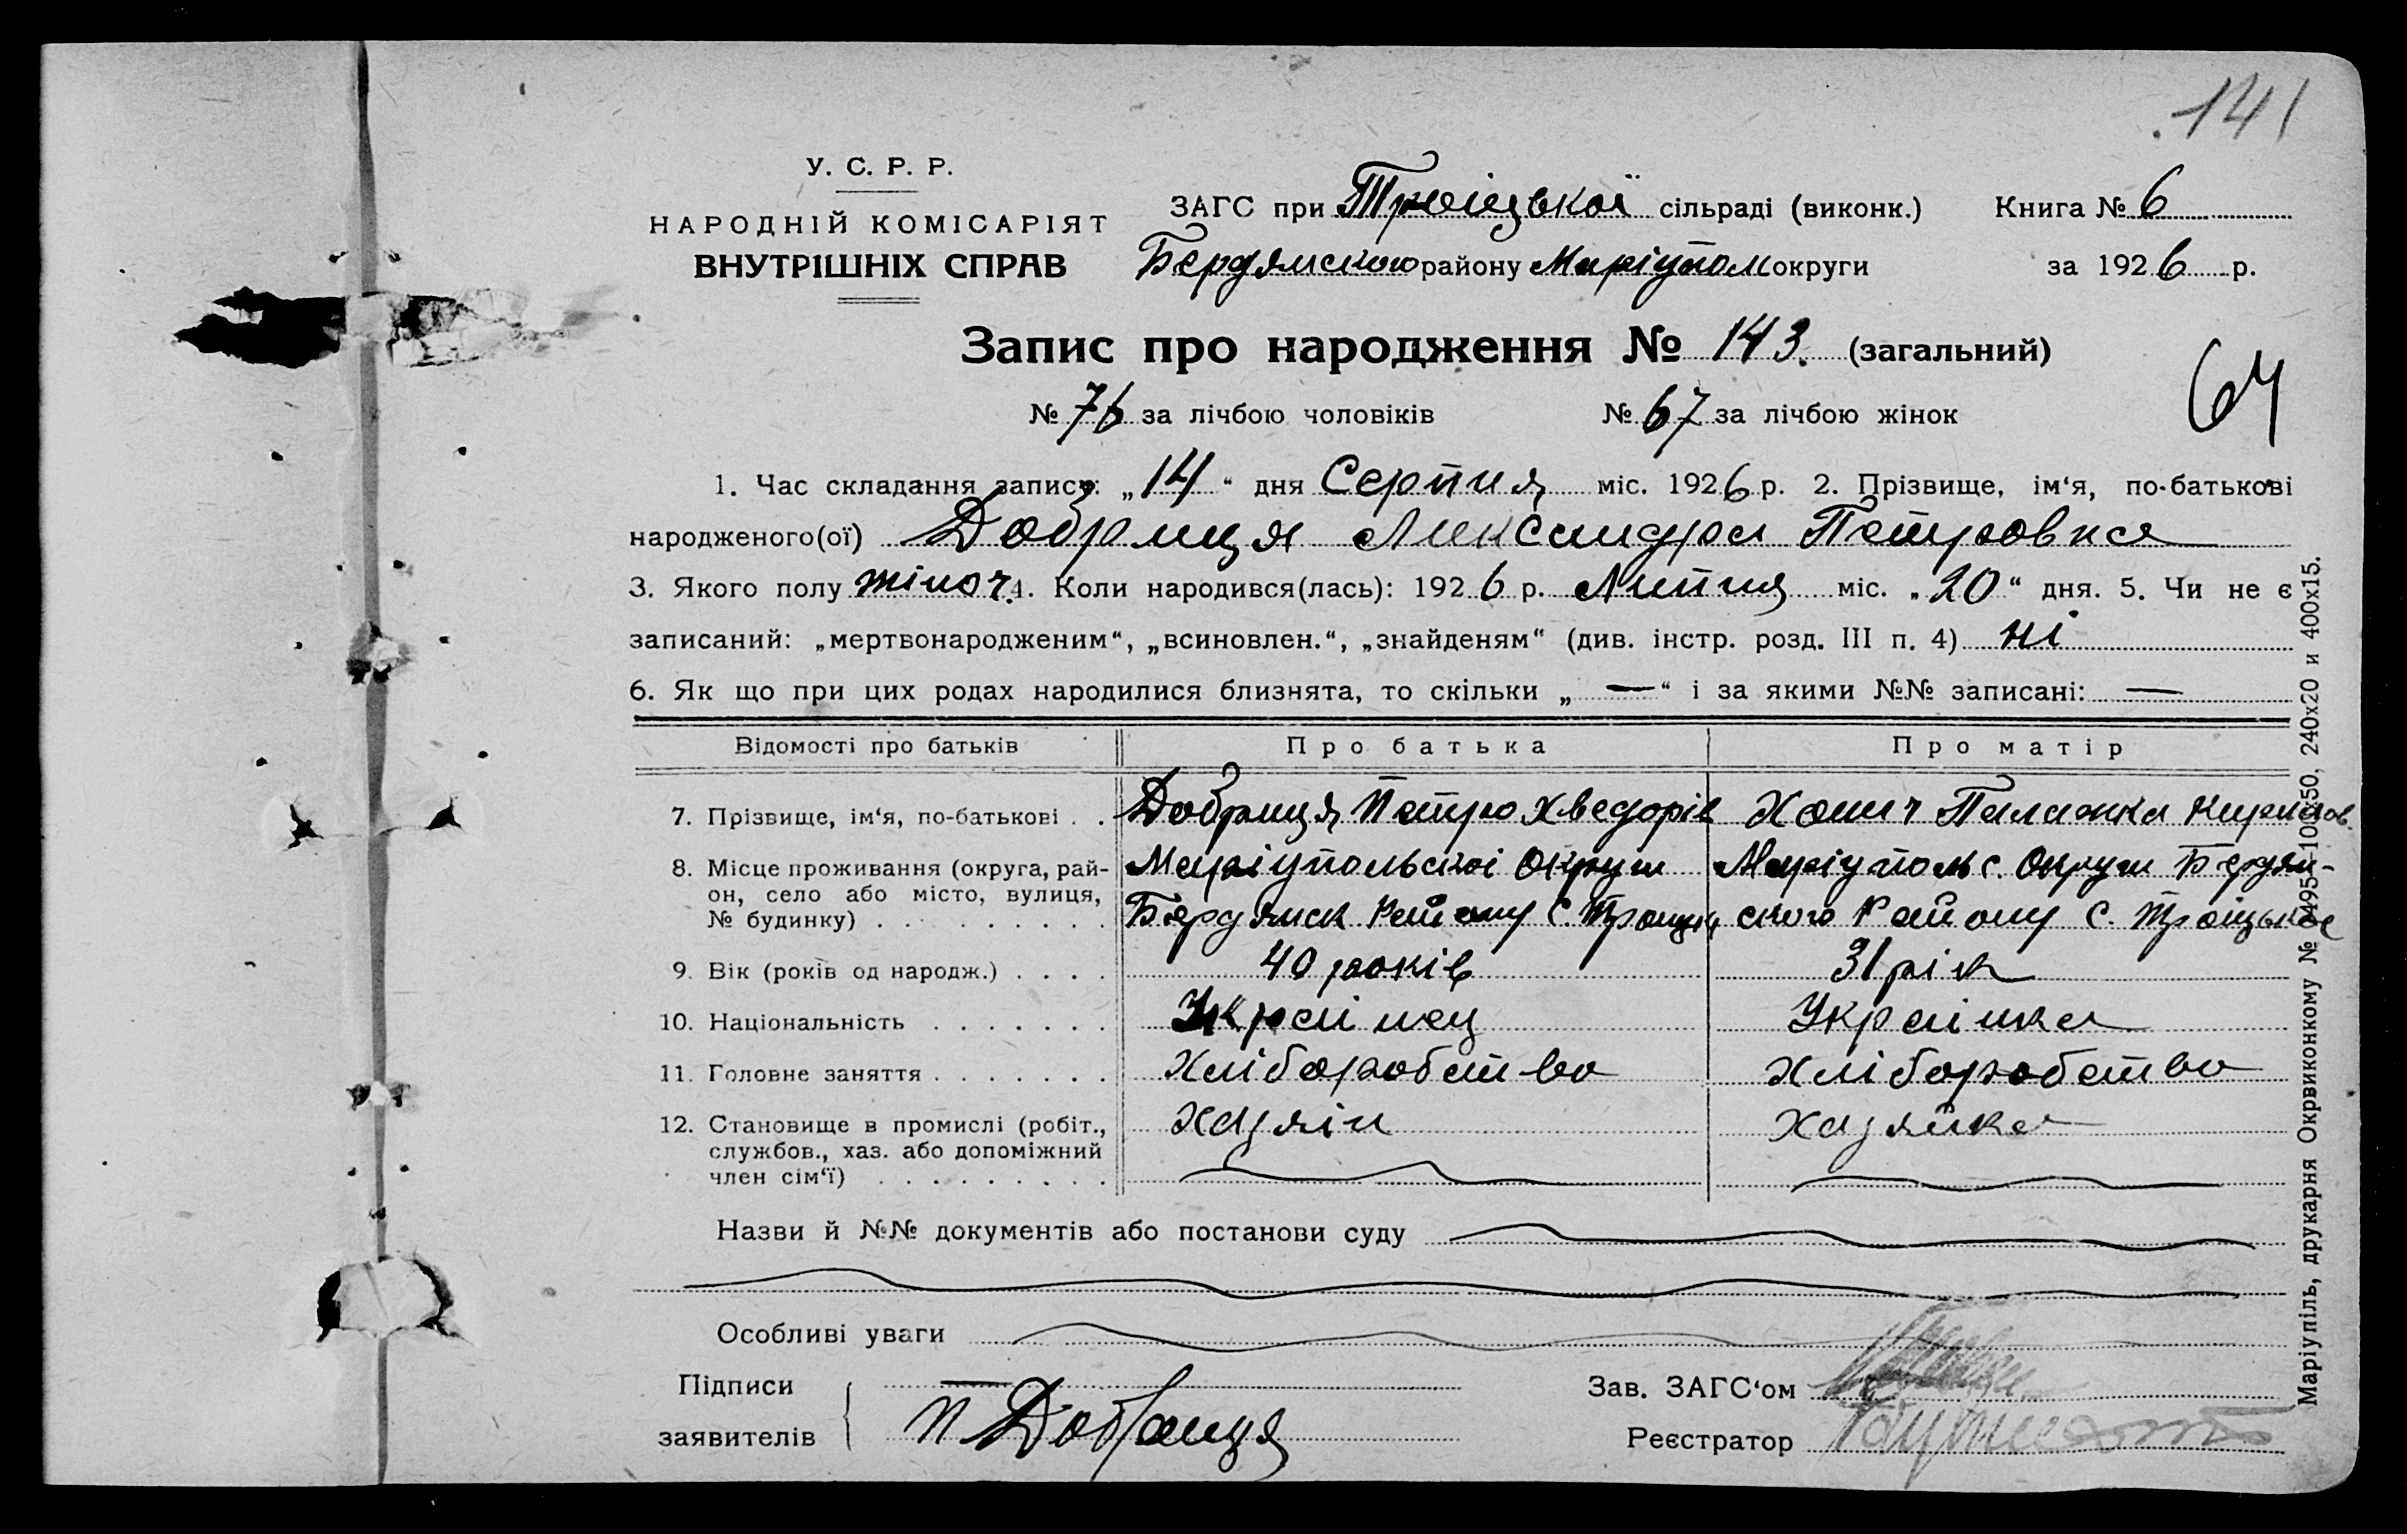 141
У. С. Р. Р.
НАРОДНІЙ КОМІСАРІЯТ
ВНУТРІШНІХ СПРАВ
ЗАГС при Троіцькоі сільраді (виконк.) Книга № 6
Бердямского району Маріупол округи за 1926 р.
Запис про народження № 143. (загальний)
64
№ 76 за лічбою чоловіків № 67 за лічбою жінок
1. Час складання запису: „14“ дня Серпня міс. 1926 р. 2. Прізвище, ім‘я, по-батькові
народженого(ої) Добриця Александра Петровна
3. Якого полу жіноч. 4. Коли народився(лась): 1926 р. Липня міс. „20“ дня. 5. Чи не є
записаний: „мертвонародженим“, „всиновлен.“, „знайденям“ (див. інстр. розд. III п. 4) ні
6. Як що при цих родах народилися близнята, то скільки „ — “ і за якими №№ записані: —
Відомості про батьків Про батька Про матір
7. Прізвище, ім‘я, по-батькові . . Добриця Петро Хведорів Палажка
8. Місце проживання (округа, рай- Маріупольскоі Округи Маріупольс. Округи Бердян-
он, село або місто, вулиця, Бердянск Району С. Троіцьк ского Району С. Троіцьке
№ будинку)
9. Вік (років од народж.) . . . . 40 років 31 рік
10. Національність . . . . . . . Украінец Украінка
11. Головне заняття . . . . . . . Хліборобство Хліборобство
12. Становище в промислі (робіт., Хазяін Хазяйка
службов., хаз. або допоміжний
член сім‘ї) . . . . . . . . .
Назви й №№ документів або постанови суду
Особливі уваги
Підписи Зав. ЗАГС‘ом
заявителів П Добриця Реєстратор
Маріупіль, друкарня Окрвиконкому № 2495—100х50, 240х20 и 400х15.